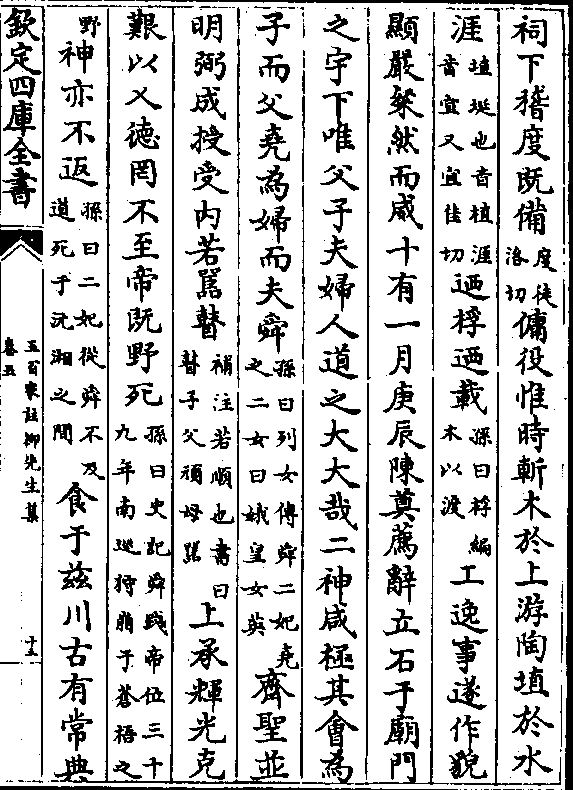 祠下稽度既備度徒洛切傭役惟時斬木於上游陶埴於水
涯埴埏也音植涯音宜又宜佳切迺桴迺載孫曰桴編木以渡工逸事遂作貌
顯嚴粲然而威十有一月庚辰陳奠薦辭立石于廟門
之宇下唯父子夫婦人道之大大哉二神咸極其會為
子而父堯為婦而夫舜孫曰列女傳舜二妃堯之二女曰娥皇女英齊聖並
明弼成授受內若嚚瞽補注若順也書曰瞽子父頑母嚚上承輝光克
艱以乂德罔不至帝既野死孫曰史記舜踐帝位三十九年南巡狩崩于蒼梧之
野神亦不返孫曰二妃從舜不及道死于沅湘之間食于茲川古有常典
欽定四庫全書
五百家註柳先生集
卷五
十三